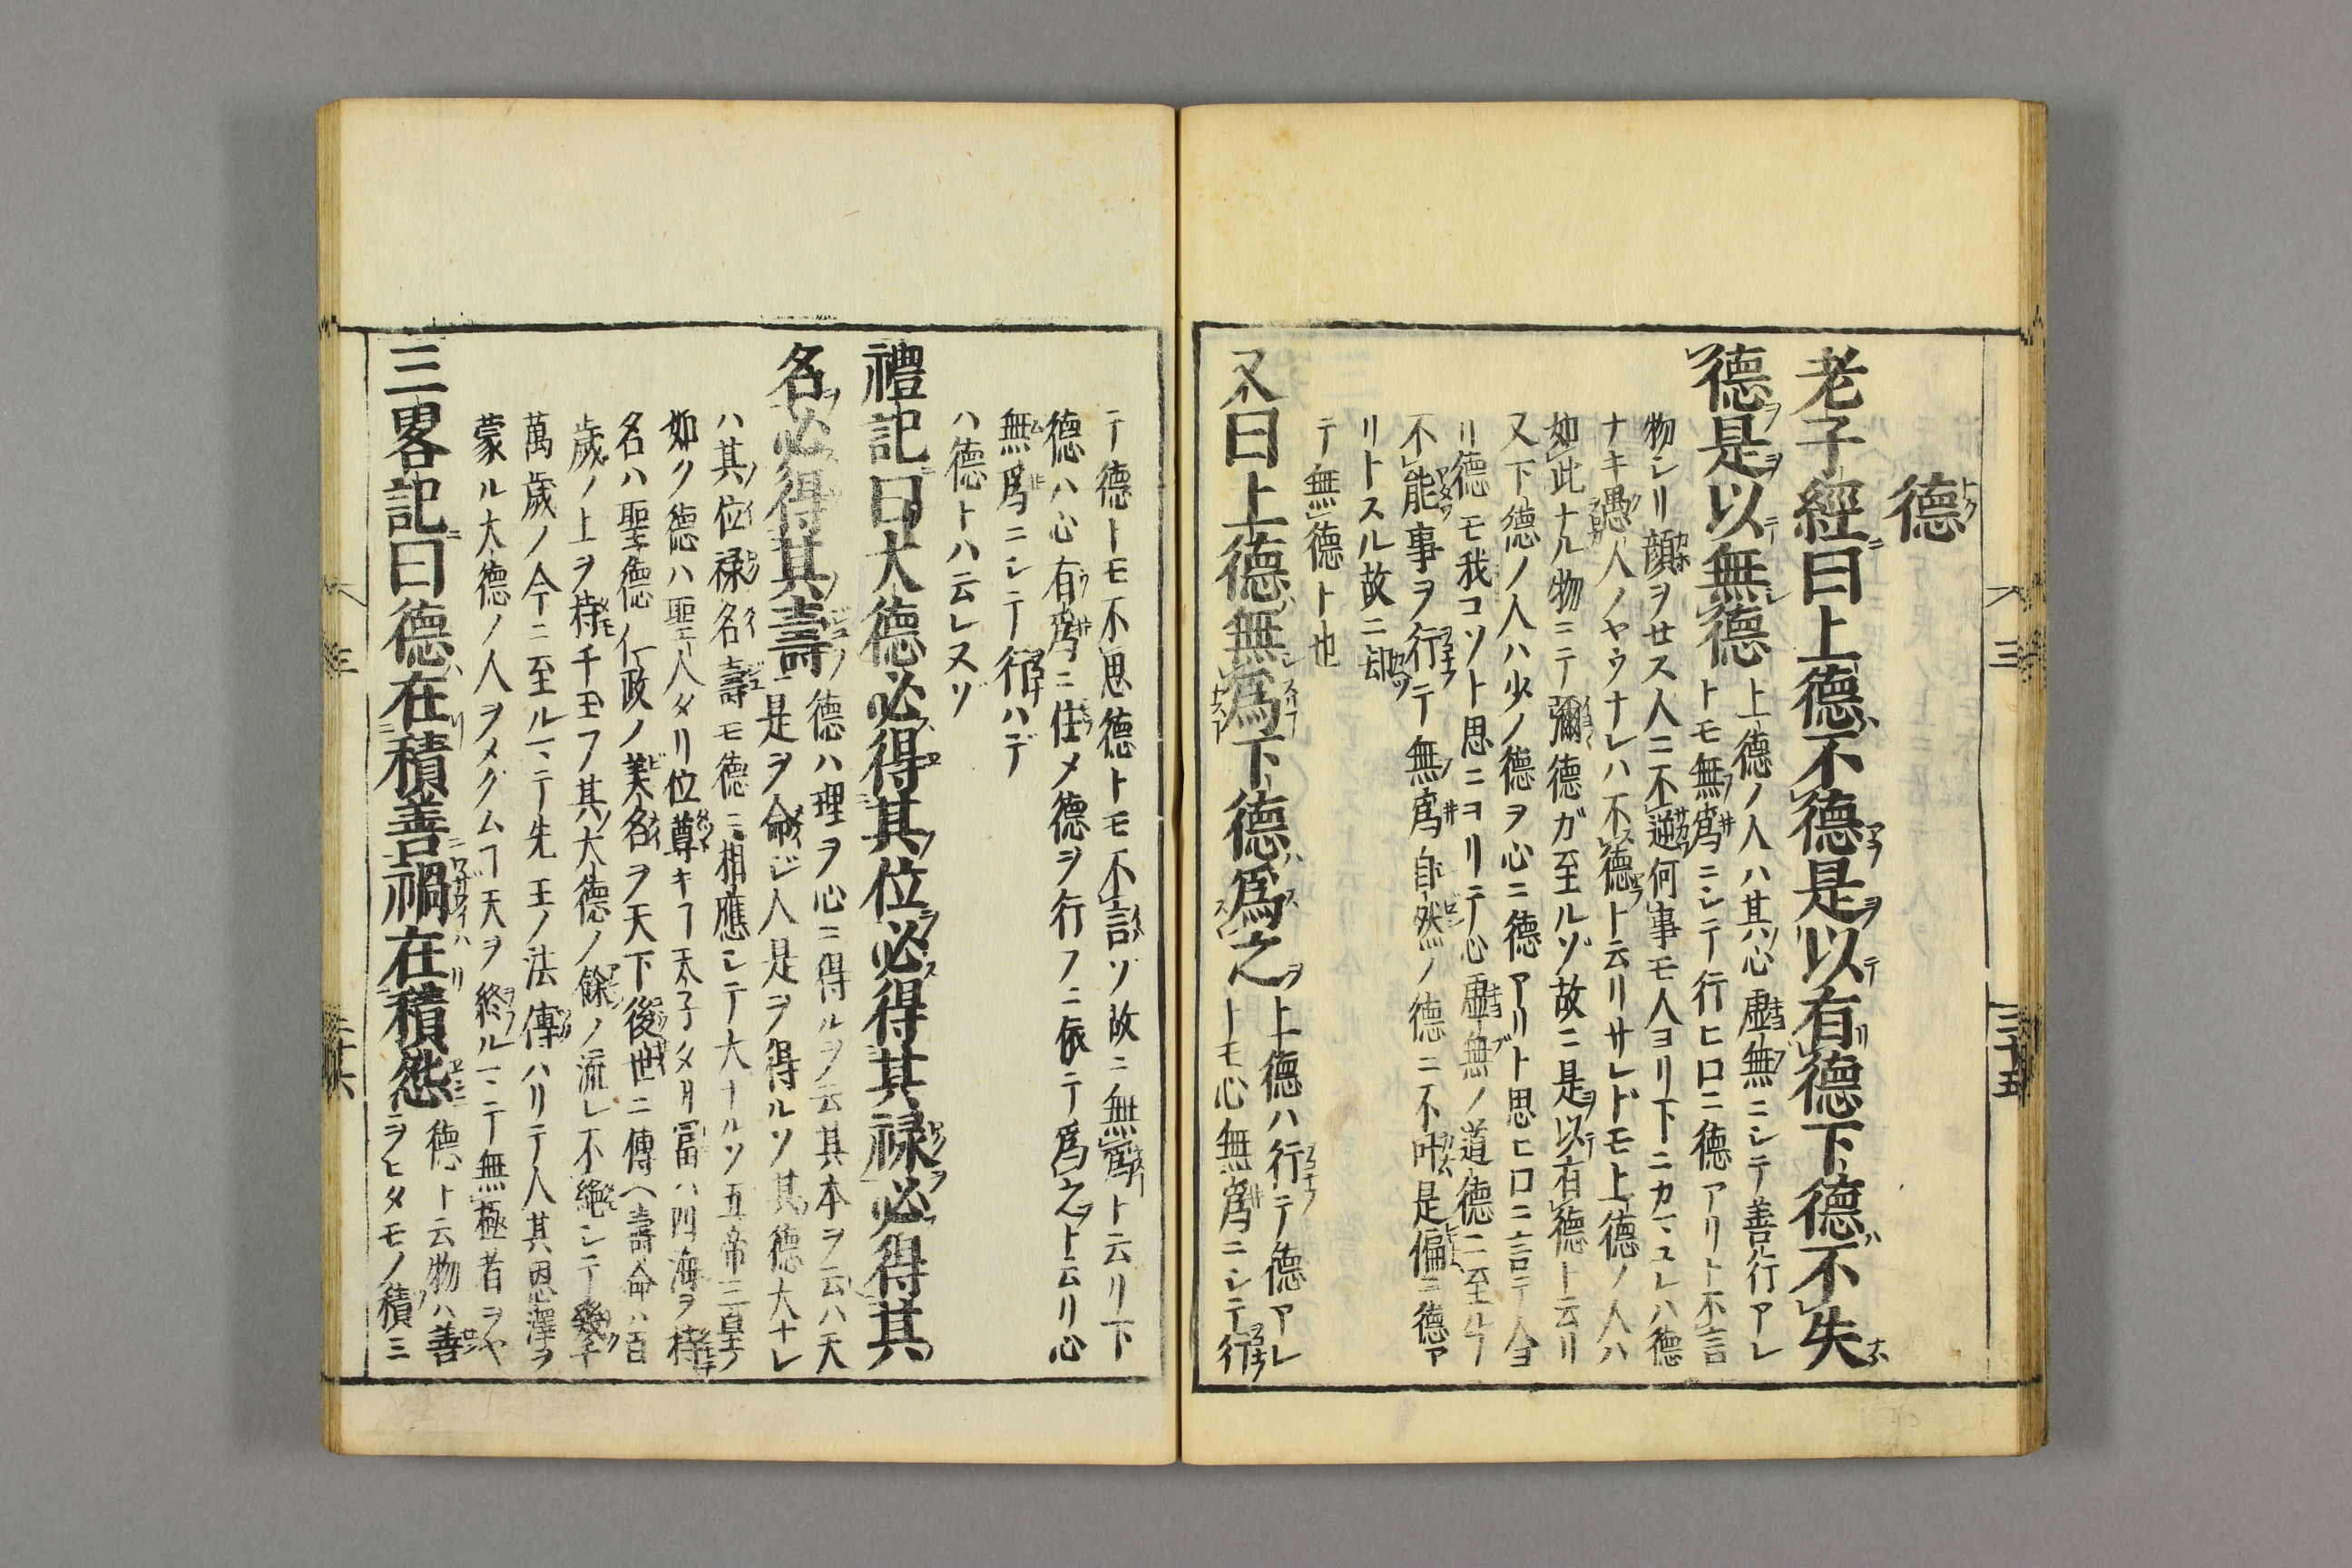 德
老子經曰上德不德是以有德下德不失
德是以無德
上德ノ人ハ其心虛無ニシテ善行アレ
トモ無爲ニシテ行ヒ口ニ德アリト不言
物シリ顏ヲセス人ニ不逆何事モ人ヨリ下ニカマユレハ德
ナキ愚人ノヤウナレハ不德ト云リサレドモ上德ノ人ハ
如此ナル物ニテ彌德ガ至ルゾ故ニ是以有德ト云リ
又下德ノ人ハ少ノ德ヲ心ニ德アリト思ヒ口ニ言テ人ヨ
リ德モ我コソト思ニヨリテ心虛無ノ道德ニ至ルヿ
不能事ヲ行テ無爲自然ノ德ニ不叶是偏ニ德ア
リトスル故ニ却
テ無德ト也
又曰上德無爲下德爲之
上德ハ行テ德アレ
トモ心無爲ニシテ行
テ德トモ不思德トモ不言ソ故ニ無爲ト云リ下
德ハ心有爲ニ住メ德ヲ行フニ依テ爲之ト云リ心
無爲ニシテ行ハデ
ハ德トハ云レヌソ
禮記曰大德必得其位必得其祿必得其
名必得其壽
德ハ理ヲ心ニ得ルヲ云其本ヲ云ハ天
是ヲ命ジ人是ヲ得ルソ其德大ナレ
ハ其位祿名壽モ德ニ相應シテ大ナルソ五帝三皇ノ
如ク德ハ聖人タリ位尊キヿ天子タリ冨ハ四海ヲ持
名ハ聖德仁政ノ美名ヲ天下後世ニ傳ヘ壽命ハ百
歲ノ上ヲ持千玉フ其大德ノ餘ノ流レ不絕シテ幾千
萬歲ノ今ニ至ルマテ先王ノ法傳ハリテ人其恩澤ヲ
蒙ル大德ノ人ヲメクムヿ天ヲ終ルマテ無極者ヲヤ
三畧記曰德在積善禍在積怨
德ト云物ハ善
ヲヒタモノ積ミ
三
三十五
三
三十六